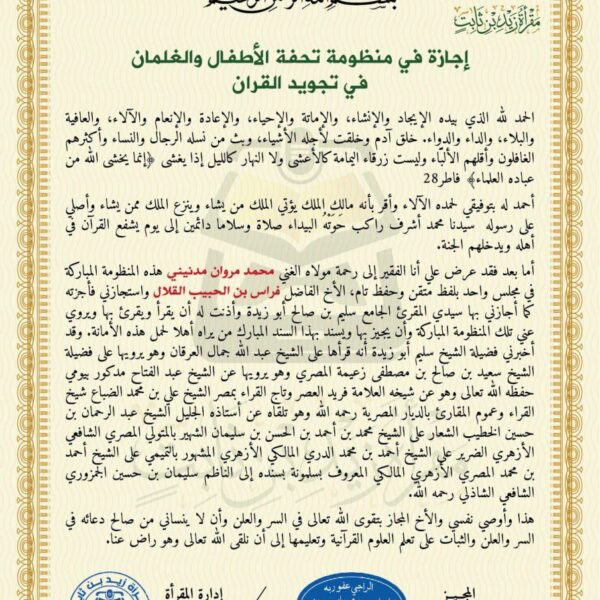 مقرأة زيد بن ثابت
إجازة في منظومة تحفة الأطفال والغلمان
في تجويد القران
الحمد لله الذي بيده الإيجاد والإنشاء، والإماتة والإحياء، والإعادة والإنعام والآلاء، والعافية
والبلاء، والداء والدواء. خلق آدم وخلقت لأجله الأشياء، وبث من نسله الرجال والنساء وأكثرهم
الغافلون وأقلهم الألبّاء وليست زرقاء اليمامة كالأعشى ولا النهار كالليل إذا يغشى ﴿إنما يخشى الله من
عباده العلماء﴾ فاطر28
أحمد له بتوفيقي لحمده الآلاء وأقر بأنه مالك الملك يؤتي الملك من يشاء وينزع الملك ممن يشاء وأصلي
على رسوله سيدنا محمد أشرف راكب حَوَتْهُ البيداء صلاة وسلاما دائمين إلى يوم يشفع القرآن في
أهله ويدخلهم الجنة.
أما بعد فقد عرض علي أنا الفقير إلى رحمة مولاه الغني محمد مروان مدنيني هذه المنظومة المباركة
في مجلس واحد بلفظ متقن وحفظ تام، الأخ الفاضل فراس بن الحبيب القلال واستجازني فأجزته
كما أجازني بها سيدي المقرئ الجامع سليم بن صالح أبو زيدة وأذنت له أن يقرأ ويقرئ بها ويروي
عني تلك المنظومة المباركة وأن يجيز بها ويسند بهذا السند المبارك من يراه أهلا لحمل هذه الأمانة. وقد
أخبرني فضيلة الشيخ سليم أبو زيدة أنه قرأها على الشيخ عبد الله جمال العرقان وهو يرويها على فضيلة
الشيخ سعيد بن صالح بن مصطفى زعيمة المصري وهو يرويها عن الشيخ عبد الفتاح مدكور بيومي
حفظه الله تعالى وهو عن شيخه العلامة فريد العصر وتاج القراء بمصر الشيخ علي بن محمد الضباع شيخ
القراء وعموم المقارئ بالديار المصرية رحمه الله وهو تلقاه عن أستاذه الجليل الشيخ عبد الرحمان بن
حسين الخطيب الشعار على الشيخ محمد بن أحمد بن الحسن بن سليمان الشهير بالمتولي المصري الشافعي
الأزهري الضرير على الشيخ أحمد بن محمد الدري المالكي الأزهري المشهور بالتميمي على الشيخ أحمد
بن محمد المصري الأزهري المالكي المعروف بسلمونة بسنده إلى الناظم سليمان بن حسين الجمزوري
الشافعي الشاذلي رحمه الله.
هذا وأوصي نفسي والأخ المجاز بتقوى الله تعالى في السر والعلن وأن لا ينساني من صالح دعائه في
السر والعلن والثبات على تعلم العلوم القرآنية وتعليمها إلى أن نلقى الله تعالى وهو راض عنا.
المجيز
إدارة المقرأة
الراجي عفو ربه